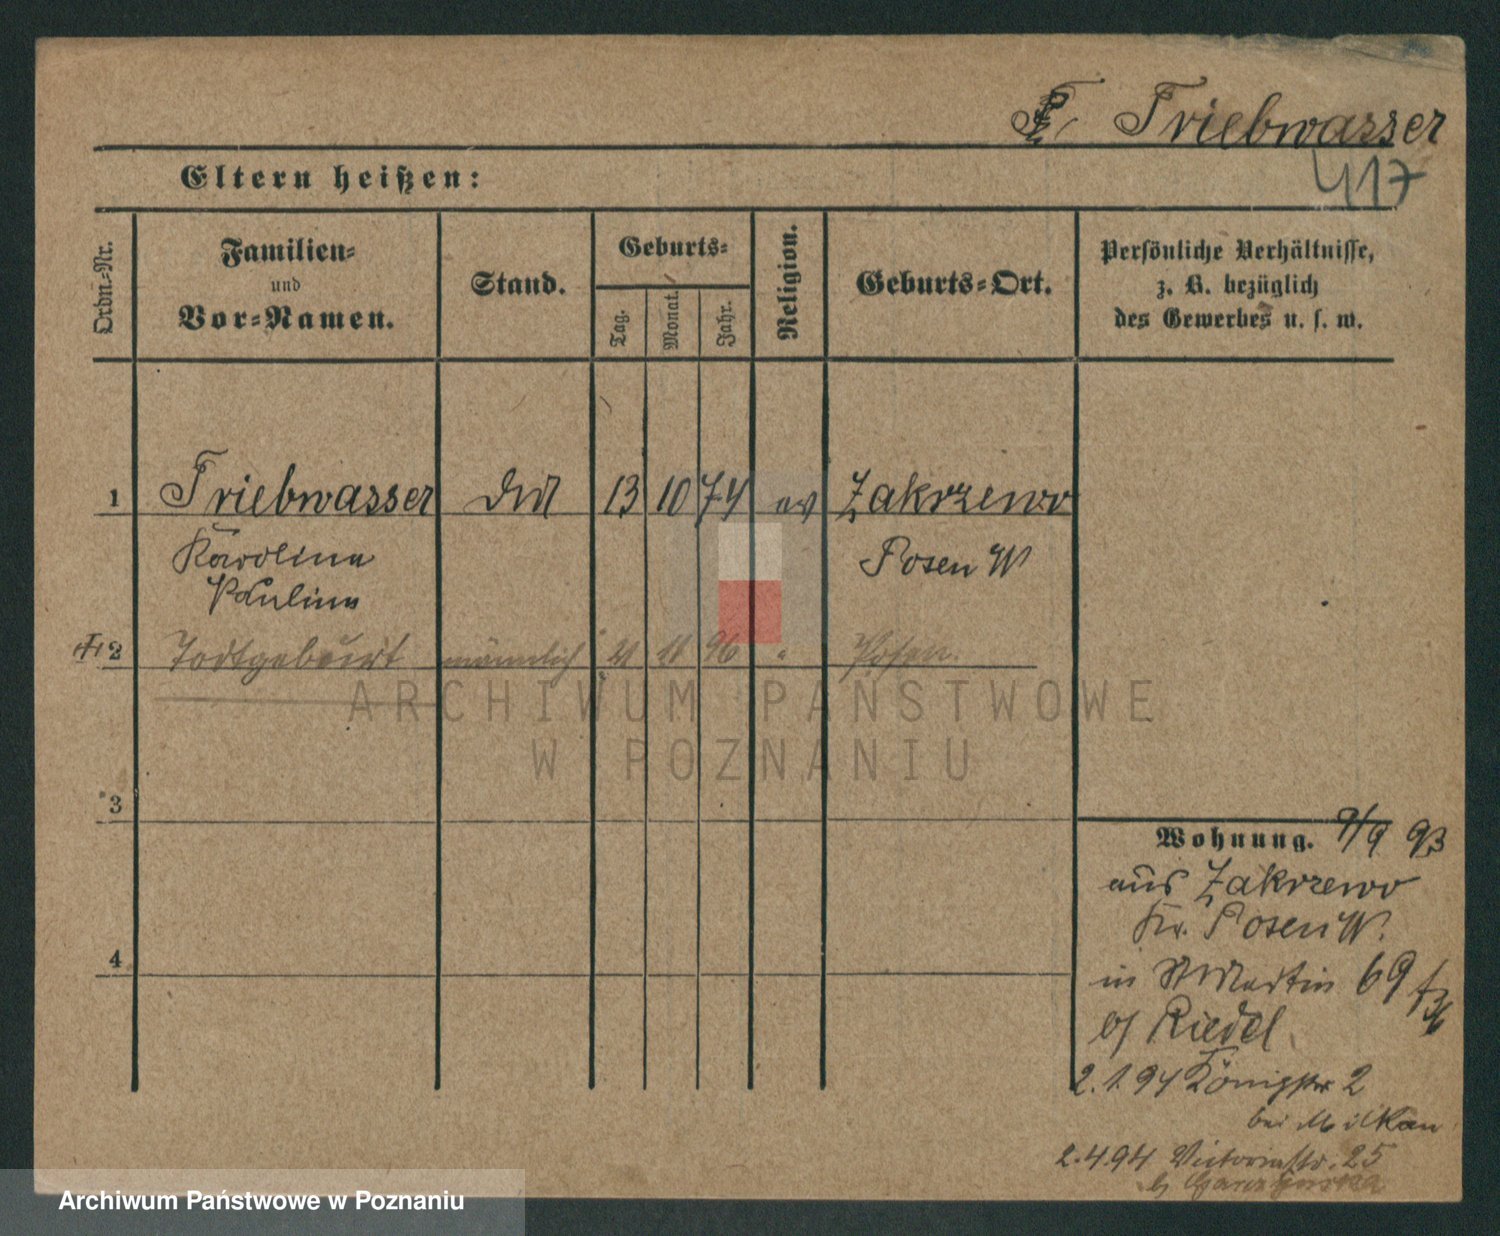 Triebwasser
417
Eltern heißen:
Ordn.-Nr.
Familien-
und
Vor-Namen.
Stand.
Geburts-
Tag.
Monat.
Jahr.
Religion.
Geburts-Ort.
Persönliche Verhältnisse,
z. B. bezüglich
des Gewerbes u. s. w.
1 Triebwasser 13 10 74 ev Zakrzewo
Karoline Posen W
Pauline
2 Todtgeburt männlich 96 Posen.
ARCHIWUM PAŃSTWOWE
W POZNANIU
3
4
Wohnung. 9/9 93
aus Zakrzewo
Kr. Posen W.
in St Martin 69
b/ Riedel
2.1.94 Königstr 2
bei Milkau
2.4.94 Victoriastr. 25
Archiwum Państwowe w Poznaniu